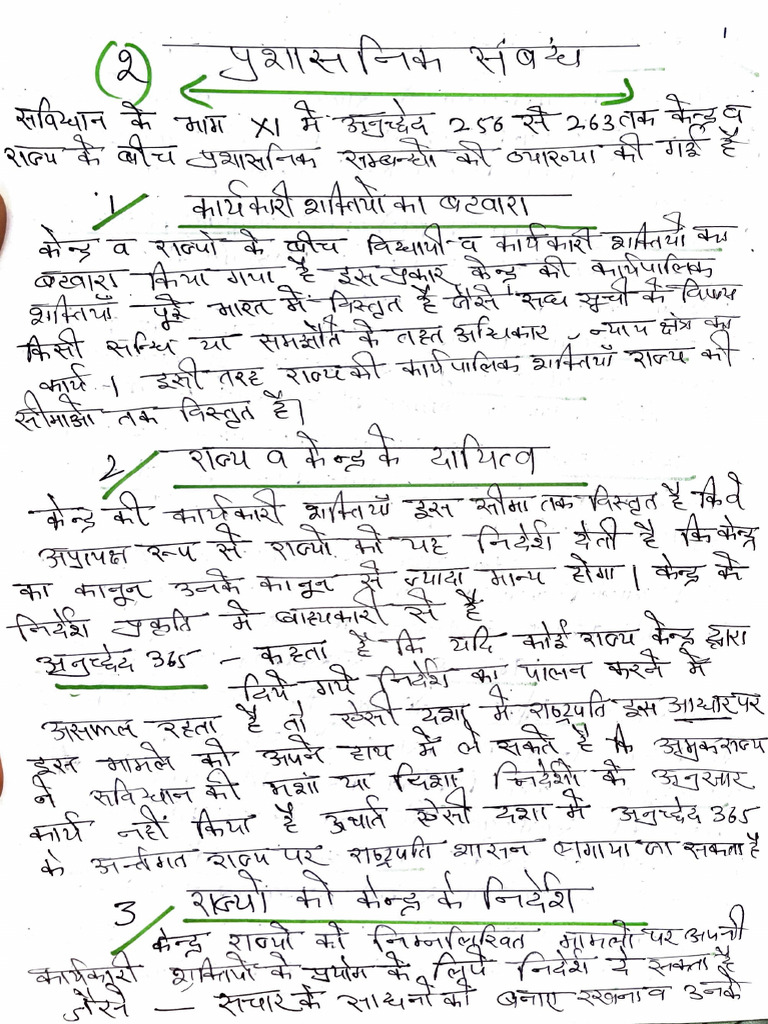 1
(2) प्रशासनिक संबंध
सविधान के भाग XI में अनुच्छेद 256 से 263 तक केन्द्र व
राज्य के बीच प्रशासनिक सम्बन्धो की व्याख्या की गई है
1 कार्यकारी शक्तियो का बटवारा
केन्द्र व राज्यो के बीच विधायी व कार्यकारी शक्तियों का
बटवारा किया गया है इस प्रकार केन्द्र की कार्यपालिक
शक्तियाँ पूरे भारत में विस्तृत है जैसे सघ सूची के विषय
किसी सन्धि या समझौते के तहत अधिकार, न्याय क्षेत्र का
कार्य । इसी तरह राज्य की कार्यपालिक शक्तियाँ राज्य की
सीमाओ तक विस्तृत है।
2 राज्य व केन्द्र के दायित्व
केन्द्र की कार्यकारी शक्तियाँ इस सीमा तक विस्तृत है कि वे
रूप से राज्यो को यह निर्देश देती है कि केन्द्र
का कानून उनके कानून से ज्यादा मान्य होगा । केन्द्र के
निर्देश प्रकृति में बाध्यकारी से है
अनुच्छेद 365 – कहता है कि यदि कोई राज्य केन्द्र द्वारा
दिये गये निर्देश का पालन करने में
असफल रहता है तो ऐसी दशा में राष्ट्रपति इस आधार पर
इस मामले को अपने हाथ में ले सकते है कि अमुक राज्य
ने सविधान की मशां या दिशा निर्देशो के अनुसार
कार्य नहीं किया है अर्थात ऐसी दशा में अनुच्छेद 365
के अर्न्तगत राज्य पर राष्ट्रपति शासन लगाया जा सकता है
3 राज्यो को केन्द्र के निर्देश
केन्द्र राज्यो को निम्नलिखित मामलो पर अपनी
कार्यकारी शक्तियो के प्रयोग के लिये निर्देश दे सकता है
जैसे – सचार के साधनो को बनाए रखना व उनके